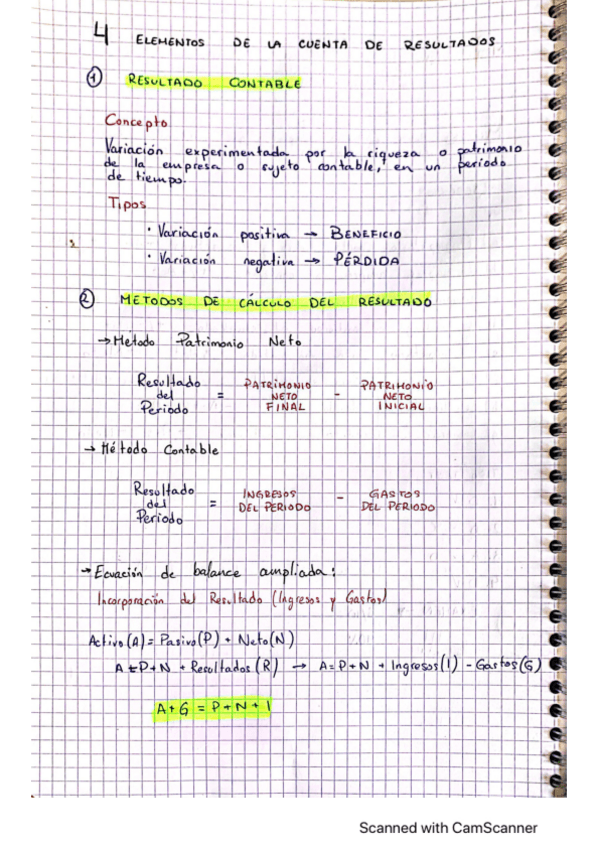 4 ELEMENTOS DE LA CUENTA DE RESULTADOS
1 RESULTADO CONTABLE
Concepto
Variación experimentada por la riqueza o patrimonio
de la empresa o sujeto contable, en un periodo
de tiempo.
Tipos
· Variación positiva → BENEFICIO
· Variación negativa → PÉRDIDA
2 METODOS DE CÁLCULO DEL RESULTADO
→ Método Patrimonio Neto
Resultado del Periodo = PATRIMONIO NETO FINAL - PATRIMONIO NETO INICIAL
→ Método Contable
Resultado del Periodo = INGRESOS DEL PERIODO - GASTOS DEL PERIODO
→ Ecuación de balance ampliada:
Incorporación del Resultado (Ingresos y Gastos)
Activo (A) = Pasivo (P) + Neto (N)
A = P + N + Resultados (R) → A = P + N + Ingresos (I) - Gastos (G)
A + G = P + N + I
Scanned with CamScanner